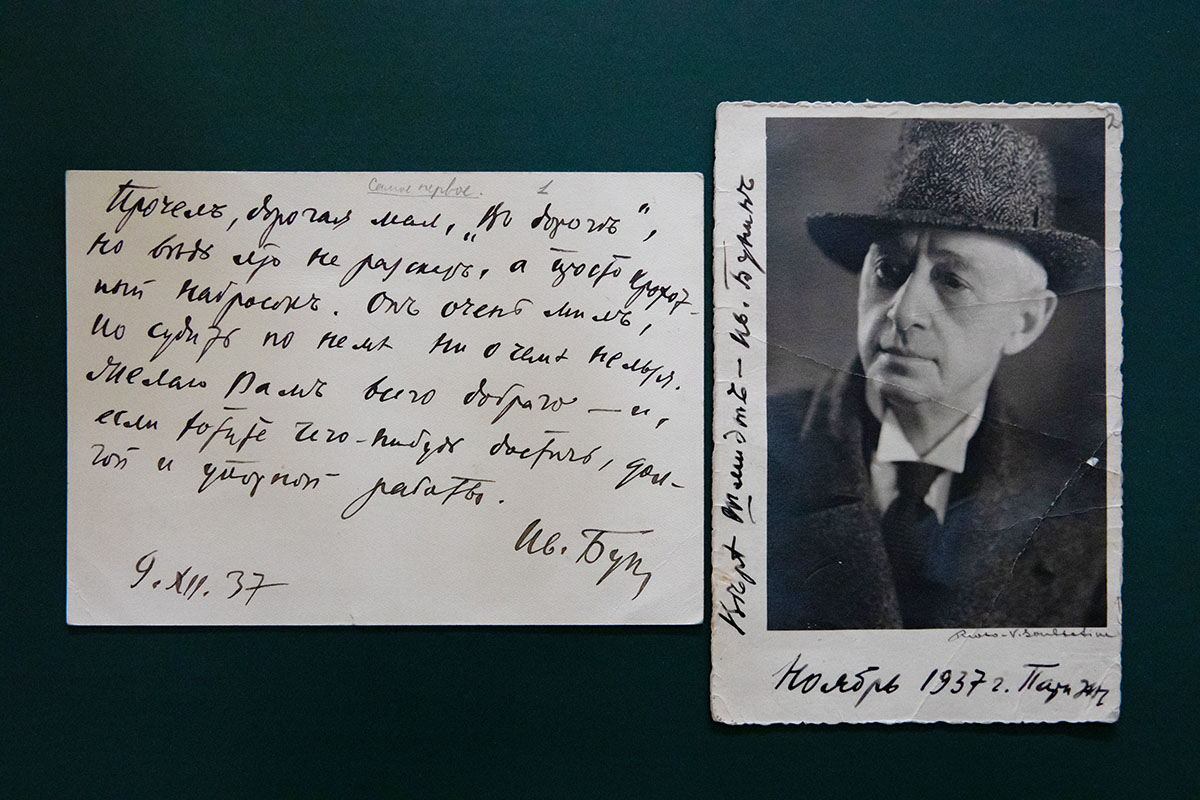 Самое первое. 1
Прочелъ, дорогая моя, „Въ дорогѣ“,
но вѣдь это не разсказъ, а просто крохот-
ный набросокъ. Онъ очень милъ,
но судить по немъ ни о чемъ нельзя.
Желаю Вамъ всего добраго — и,
если хотите чего-нибудь достичь, дол-
гой и упорной работы.
Ив. Бунин
9. XII. 37
2
Вѣрѣ Шмидтъ — Ив. Бунинъ
Photo-V.
Ноябрь 1937 г. Парижъ